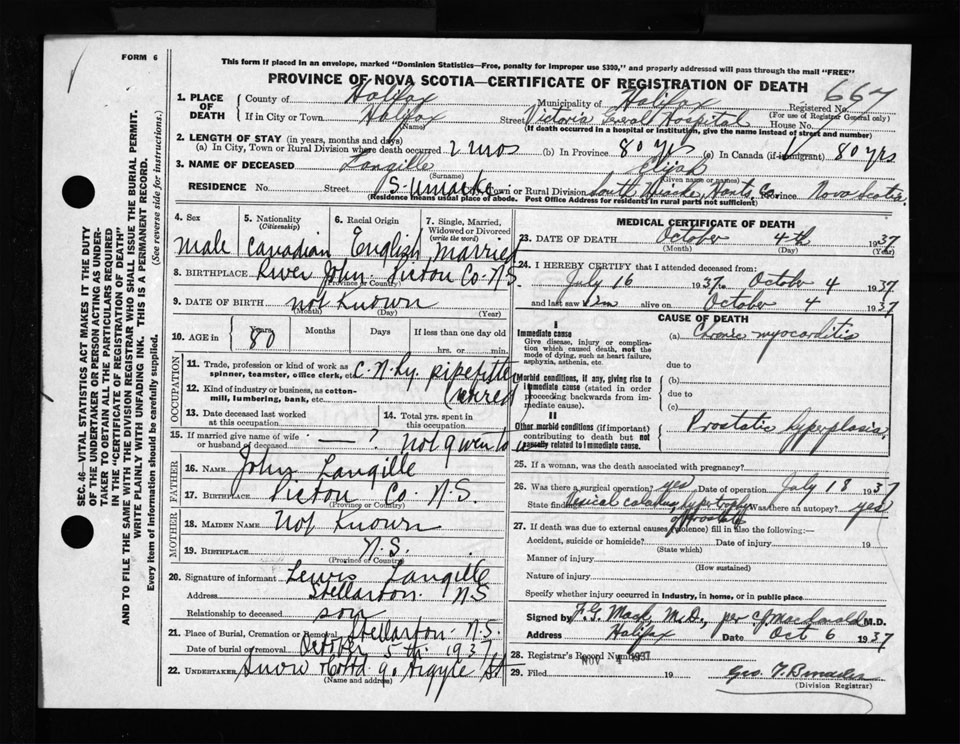 FORM 6
This form if placed in an envelope, marked "Dominion Statistics—Free, penalty for improper use $300," and properly addressed will pass through the mail "FREE"
PROVINCE OF NOVA SCOTIA—CERTIFICATE OF REGISTRATION OF DEATH
SEC. 46—VITAL STATISTICS ACT MAKES IT THE DUTY
OF THE UNDERTAKER OR PERSON ACTING AS UNDER-
TAKER TO OBTAIN ALL THE PARTICULARS REQUIRED
IN THE "CERTIFICATE OF REGISTRATION OF DEATH"
AND TO FILE THE SAME WITH THE DIVISION REGISTRAR WHO SHALL ISSUE THE BURIAL PERMIT.
WRITE PLAINLY WITH UNFADING INK. THIS IS A PERMANENT RECORD.
Every item of information should be carefully supplied. (See reverse side for instructions.)
1. PLACE OF DEATH County of Halifax Municipality of Halifax Registered No. 667
(For use of Registrar General only)
If in City or Town Halifax Street Victoria General Hospital House No.
(Name) (If death occurred in a hospital or institution, give the name instead of street and number)
2. LENGTH OF STAY (in years, months and days)
(a) In City, Town or Rural Division where death occurred 2 mos (b) In Province 80 yrs (c) In Canada (if immigrant) 80 yrs
3. NAME OF DECEASED Langille Elijah
(Surname) (Given name or names)
RESIDENCE No. Street S. Uniacke City, Town or Rural Division South Uniacke, Hants Co. Province Nova Scotia
(Residence means usual place of abode. Post Office Address for residents in rural parts not sufficient)
4. Sex 5. Nationality (Citizenship) 6. Racial Origin 7. Single, Married, Widowed or Divorced (write the word)
male Canadian English married
8. BIRTHPLACE River John Pictou Co. N.S.
(Province or Country)
9. DATE OF BIRTH not known
(Month) (Day) (Year)
10. AGE in Years Months Days If less than one day old
80 hrs. or min.
OCCUPATION
11. Trade, profession or kind of work as spinner, teamster, office clerk, etc. C.N.Ry. pipefitter
12. Kind of industry or business, as cotton-mill, lumbering, bank, etc. (retired)
13. Date deceased last worked at this occupation 14. Total yrs. spent in this occupation
15. If married give name of wife or husband of deceased — ? not given to us
FATHER
16. NAME John Langille
17. BIRTHPLACE Pictou Co. N.S.
(Province or Country)
MOTHER
18. MAIDEN NAME Not Known
19. BIRTHPLACE N.S.
(Province or Country)
20. Signature of informant Lewis Langille
Address Stellarton N.S
Relationship to deceased son
21. Place of Burial, Cremation or Removal Stellarton N.S.
Date of burial or removal October 5th 1937
22. UNDERTAKER Snow & Co Ltd 90 Argyle St
(Name and address)
MEDICAL CERTIFICATE OF DEATH
23. DATE OF DEATH October 4th 1937
(Month) (Day) (Year)
24. I HEREBY CERTIFY that I attended deceased from:
July 16 1937 to October 4 1937
and last saw him alive on October 4 1937
CAUSE OF DEATH
I
Immediate cause (a) Chronic myocarditis
Give disease, injury or complication which caused death, not the mode of dying, such as heart failure, asphyxia, asthenia, etc.
due to
Morbid conditions, if any, giving rise to immediate cause (stated in order proceeding backwards from immediate cause). (b)
due to
(c)
II
Other morbid conditions (if important) contributing to death but not causally related to immediate cause. Prostatic hyperplasia
25. If a woman, was the death associated with pregnancy?
26. Was there a surgical operation? yes Date of operation July 18 1937
State findings Vesical calculus, hypertrophy of prostate Was there an autopsy? yes
27. If death was due to external causes (violence) fill in also the following:—
Accident, suicide or homicide? Date of injury 19
(State which)
Manner of injury
(How sustained)
Nature of injury
Specify whether injury occurred in industry, in home, or in public place
Signed by F. G. Mack, M.D., per C J Macdonald M.D.
Address Halifax Date Oct 6 1937
28. Registrar's Record Number
NOV 4 1937
29. Filed 19
(Division Registrar)